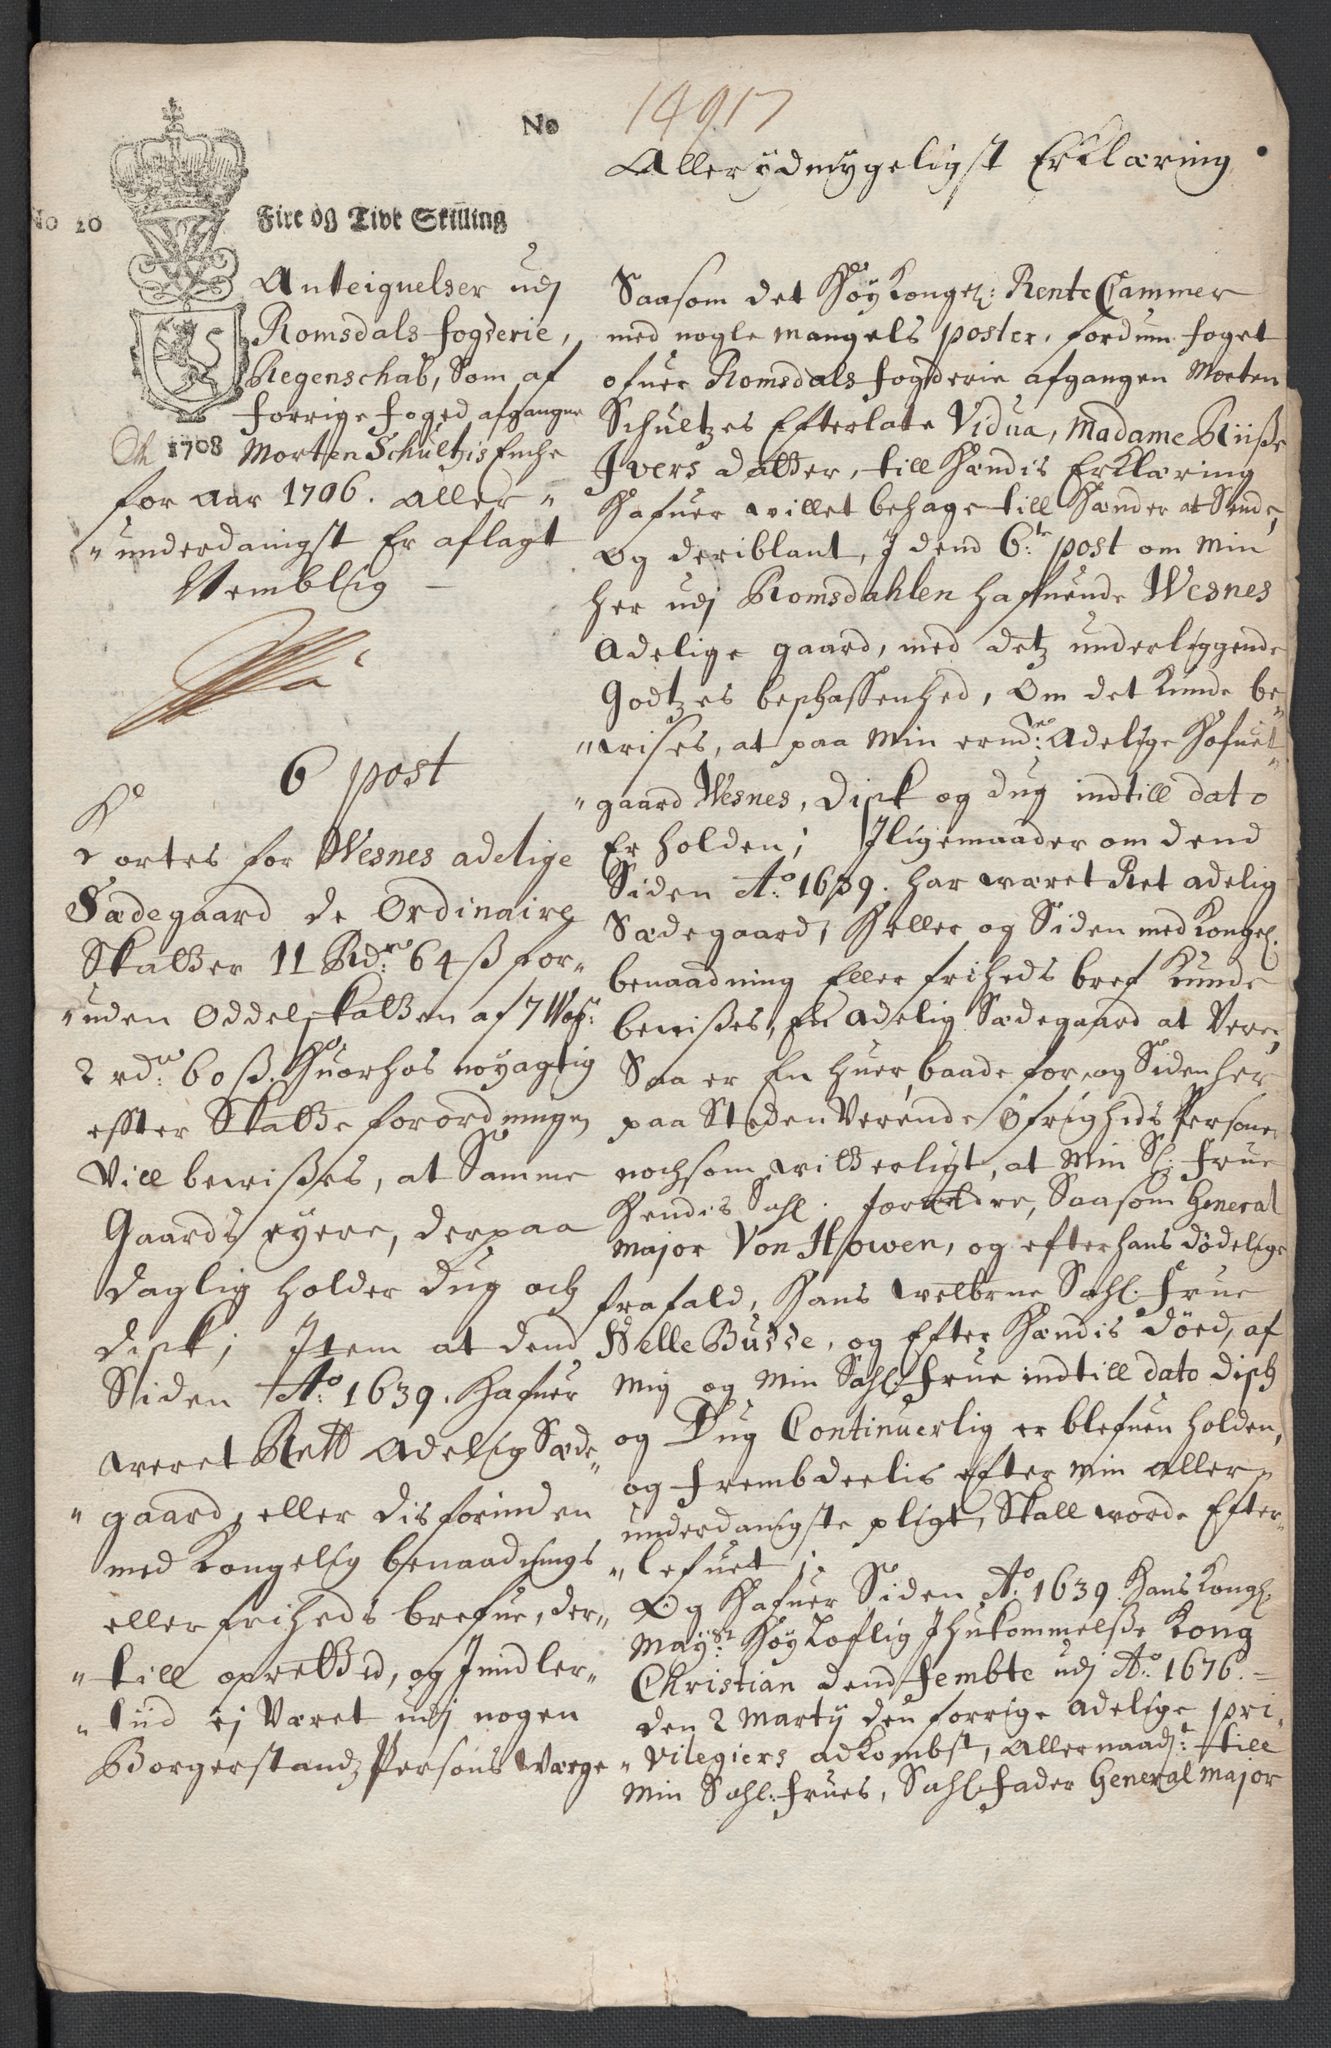 No 14917
No 20
Fire og Tive Skilling
1708
Anteignelser udj
Romsdals fogderie,
Regenschab, Som af
forrige foged afgangne
Morten Schultzis Enche
for aar 1706. aller-
underdanigst Er aflagt
Nemblig -
6 post
Kortes for Wesnes adelige
Sædegaard de Ordinaire
Skatter 11 Rdr 64 ß for-
uden Oddelskatten af 7 Wog:
2 rdr: 60 ß. Huorhos nøyagtig
effter Skatte forordningen
Vill bewißes, at Samme
Gaards eyere, derpaa
daglig holder Dug och
Disk; Item at dend
Siden Ao: 1639. Hafuer
weret Rett Adelig Sæde-
gaard, eller dis forinden
med Kongelig benaadnings
eller friheds brefue, der-
till opretted, og Imidler-
tiid ej Været udj nogen
Borgerstandz Persons Værge
Allerydmygeligst Erklæring
Saasom det Høy Kongel: Rente Cammer
med nogle mangels poster, fordum foget
ofuer Romsdals fogderie afgangen Morten
Schultzes Efterlate Vidua, Madame Riiße
Ivers datter, till Hændis Erklæring
Hafuer willet behage till Hænder at Sende,
og deriblant, J dend 6:te post om Min
her udj Romsdahlen hafuende Wesnes
Adelige gaard, med detz underliggende
Godtzes beschaffenhed, Om det Kunde be-
wises, at paa Min ermte: Adelige Hofuet-
gaard Wesnes, Disk og dug indtill dato
Er holden; Jligemaader om dend
Siden Ao: 1639. har wæret Ret adelig
Sædegaard, Heller og Siden med Kongel.
benaadning Eller friheds bref Kunde
bewißes, En Adelig Sædegaard at Vere,
Saa er En huer, baade for, og Siden her
paa Steden Verende Øfrigheds Personer
nochsom witterligt, at Min Sl: Frue
Hendis Sahl. forældre, Saasom General
Major Von Howen, og efter hans dødelige
frafald, Hans welbrne Sahl. Frue
Helle Busse, og Efter Hændis Død, af
Mig og Min Sahl: Frue indtill dato Disch
og Dug Continuerlig er blefuen holden,
og frembdeelis efter Min aller-
underdanigste pligt, Skall worde Efter-
lefuet;
Og Hafuer Siden Ao: 1639. Hans Kongl.
Mayst: Høyloflig Jhukommelße Kong
Christian dend Fembte udj Ao: 1676. -
den 2 Marty den forrige Adelige pri-
vilegiers adkombst, Allernaadst: till
Min Sahl: Frues, Sahl. Fader General Major